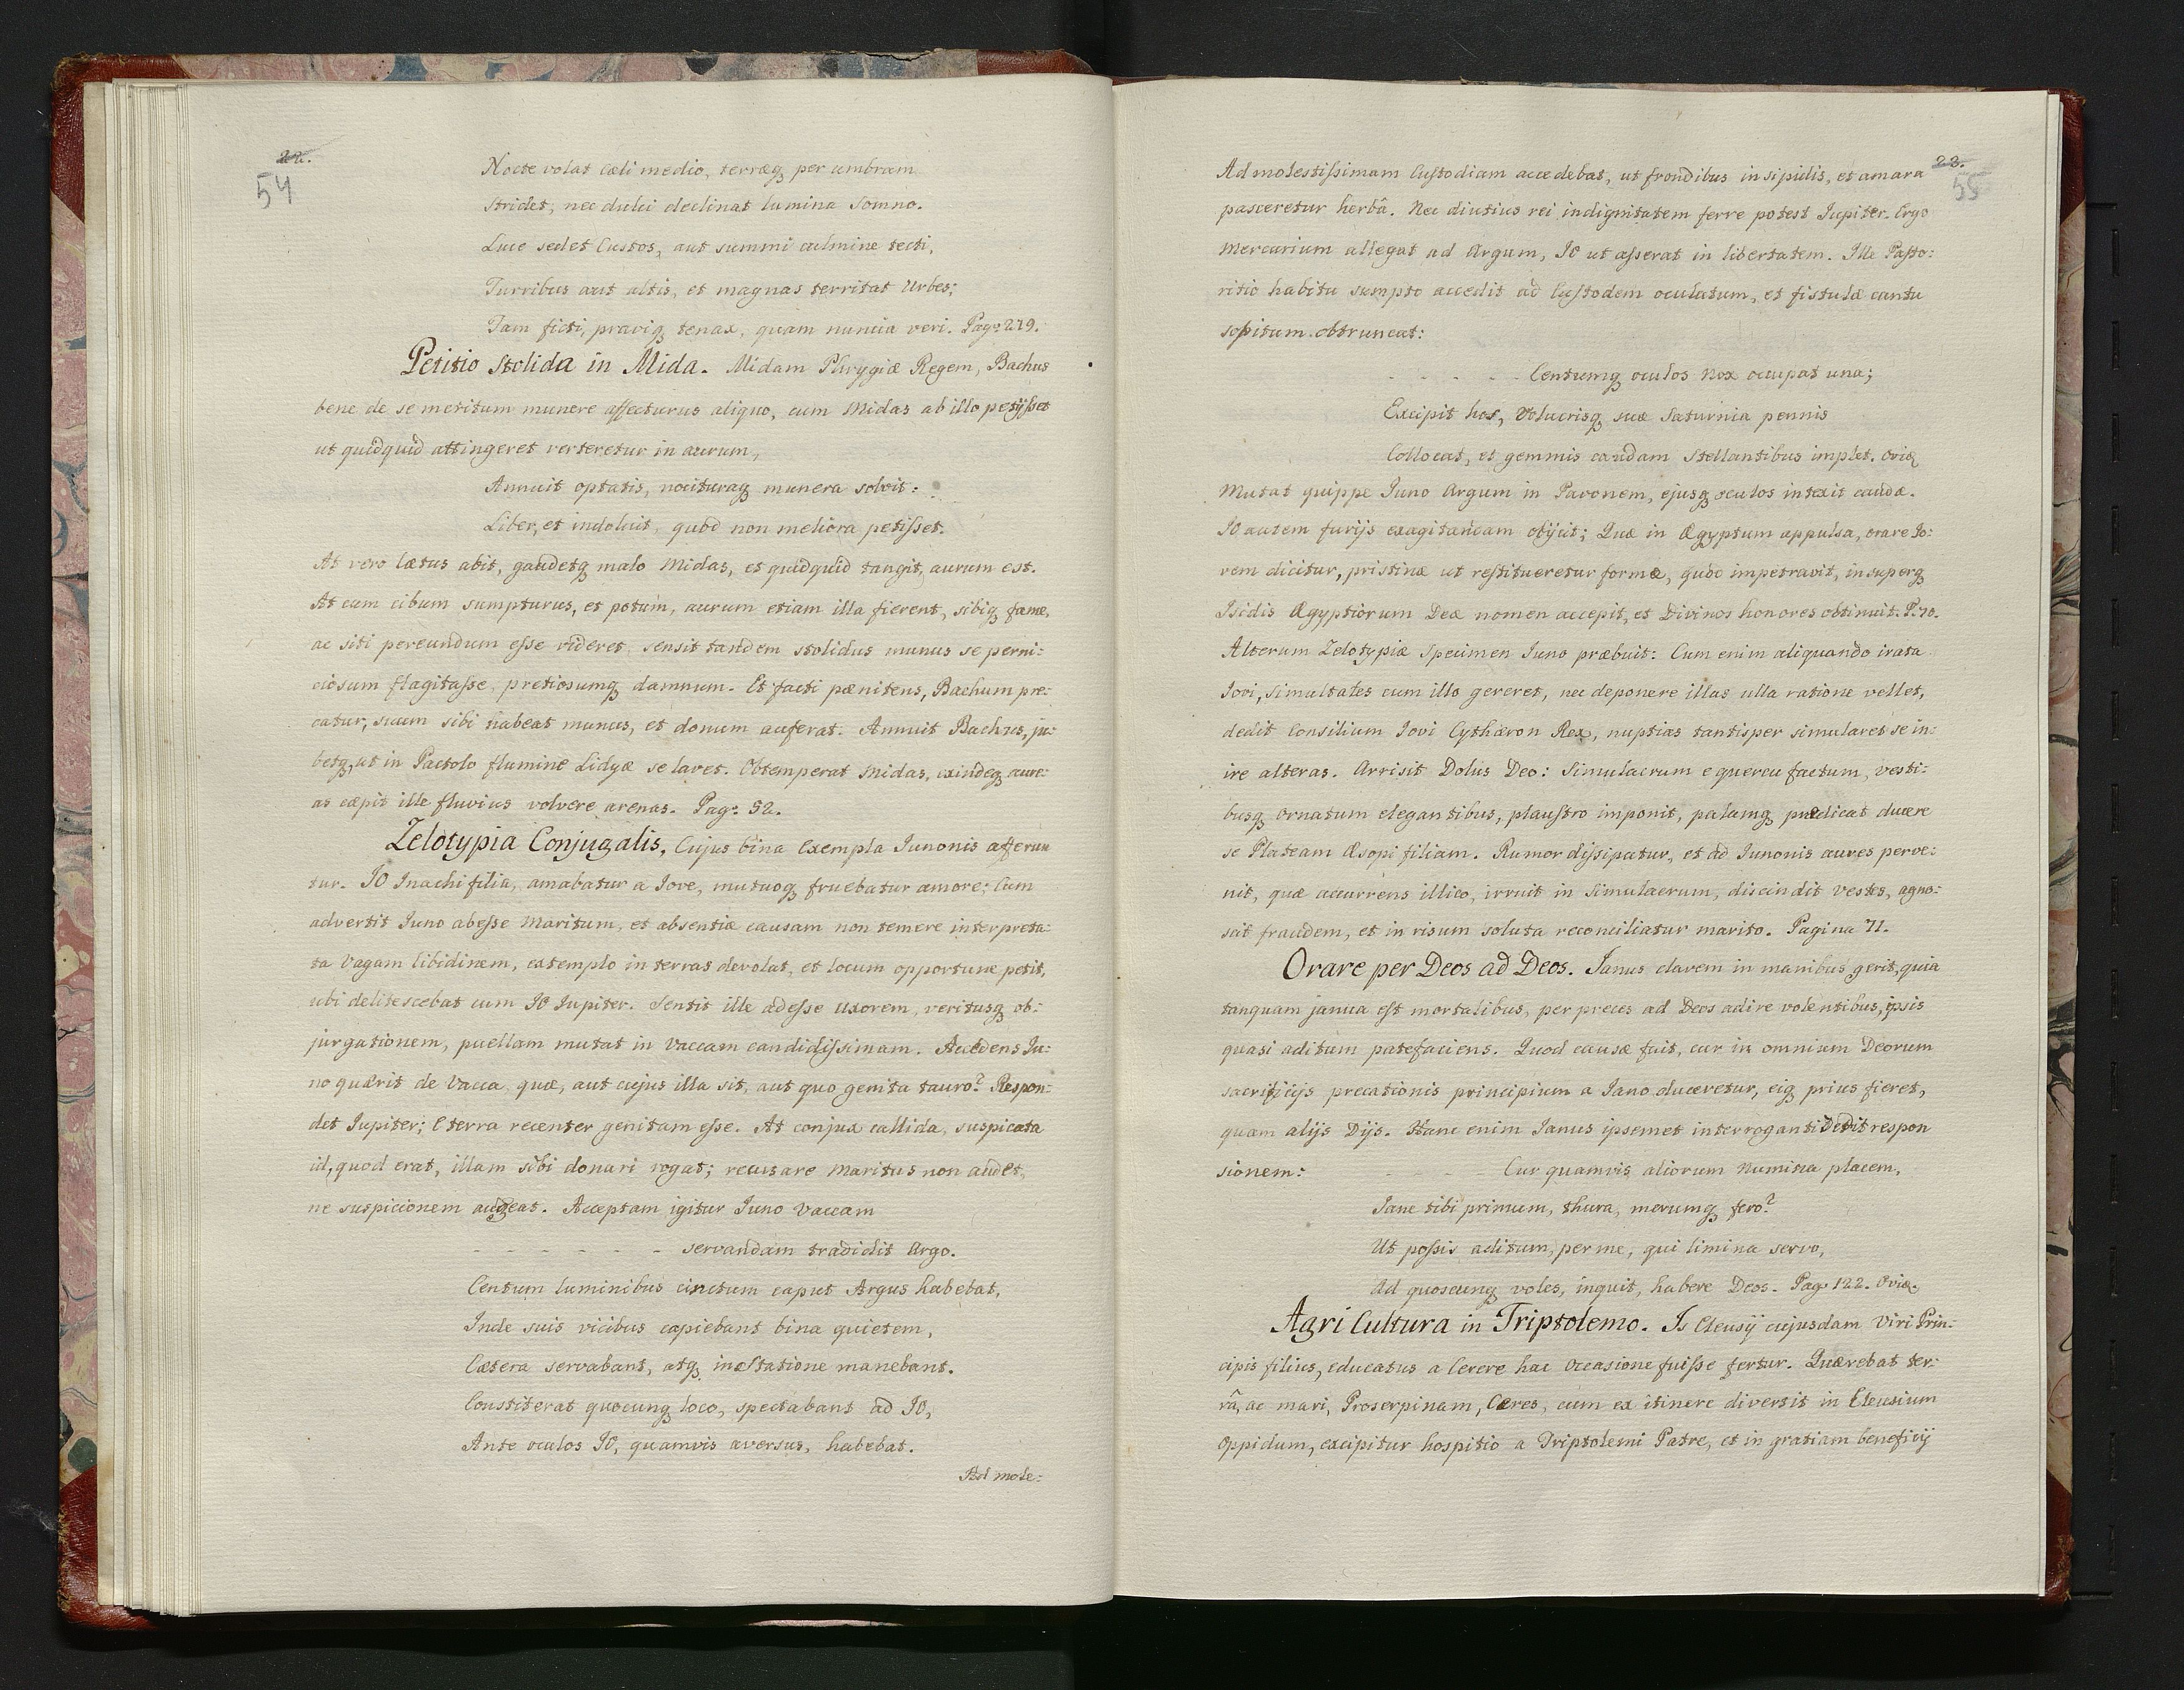 22.
54
Nocte volat cæli medio, terræq, per umbram
Stridet, nec dulci declinat lumina Somno.
Luce sedet Custos, aut summi culmine tecti,
Turribus aut altis, et magnas territat Urbes;
Tam ficti, praviq, tenax, quam nuncia veri. Pag: 219.
Petitio Stolida in Mida. Midam Phrygiæ Regem, Bachus
bene de se meritum munere affecturus aliquo, cum Midas ab illo petijsset
ut quidquid attingeret verteretur in aurum,
Annuit optatis, nocituraq, munera solvit:
Liber, et indoluit, quòd non meliora petisset.
At vero lætus abit, gaudetq, malo Midas, et quidquid tangit, aurum est.
At cum cibum sumpturus, et potum, aurum etiam illa fierent, sibiq, fame,
ac siti pereundum esse videret, sensit tandem stolidus munus se perni:
ciosum flagitasse, pretiosumq, damnum. Et facti pænitens, Bachum pre:
catur, suum sibi habeat munus, et donum auferat. Annuit Bachus, ju:
betq, ut in Pactolo flumine Lidyæ se lavet. Obtemperat Midas, exindeq, aure:
as cæpit ille fluvius volvere arenas. Pag: 52.
Zelotypia Conjugalis, Cujus bina Exempla Junonis afferun
tur. IO Inachi filia, amabatur a Jove, mutuoq, fruebatur amore; Cum
advertit Juno abesse Maritum, et absentiæ causam non temere interpreta:
ta Vagam libidinem, extemplo in terras devolat, et locum opportune petit,
ubi delitescebat cum IO Jupiter. Sentit ille adesse Uxorem, veritusq, ob:
jurgationem, puellam mutat in Vaccam candidissimam. Accedens Ju:
no quærit de Vacca, quæ, aut cujus illa sit, aut quo genita tauro? Respon:
det Jupiter; E terra recenter genitam esse. At conjux callida, suspicata
id, quod erat, illam sibi donari rogat; recusare Maritus non audet,
ne suspicionem augeat. Acceptam igitur Juno Vaccam
- - - - - - - servandam tradidit Argo.
Centum luminibus cinctum caput Argus habebat,
Inde suis vicibus capiebant bina quietem,
Cætera servabant, atq, in Statione manebant.
Constiterat quocunq, loco, spectabant ad IO,
Ante oculos IO, quamvis aversus, habebat.
Ad mole:
23.
55
Ad molestissimam Custodiam accedebat, ut frondibus insipidis, et amara
pasceretur herbâ. Nec diutius rei indignitatem ferre potest Jupiter. Ergo
Mercurium allegat ad Argum, IO ut asserat in libertatem. Ille Pasto:
ritio habitu sumpto accedit ad Custodem oculatum, et fistulæ cantu
sopitum obtruncat:
- - - - - Centumq, oculos Nox occupat una;
Excipit hos, Volucrisq, suæ Saturnia pennis
Collocat, et gemmis caudam Stellantibus implet. Ovid
Mutat quippe Juno Argum in Pavonem, ejusq, oculos intexit caudæ.
IO autem furijs exagitandam objicit; Quæ in Ægyptum appulsa, orare Jo:
vem dicitur, pristinæ ut restitueretur formæ, quòd impetravit, insuperq,
Isidis Ægyptiorum Deæ nomen accepit, et Divinos honores obtinuit. P: 70.
Alterum Zelotypiæ Specimen Juno præbuit: Cum enim aliquando irata
Jovi, Simultates cum illo gereret, nec deponere illas ulla ratione vellet,
dedit Consilium Jovi Cythæron Rex, nuptias tantisper simularet se in:
ire alteras. Arrisit Dolus Deo: Simulacrum e quercu factum, vesti:
busq, ornatum elegantibus, plaustro imponit, palamq, prædicat ducere
se Plateam Æsopi filiam. Rumor dissipatur, et ad Junonis aures perve:
nit, quæ accurrens illico, irruit in Simulacrum, discindit Vestes, agno:
scit fraudem, et in risum soluta reconciliatur marito. Pagina 71.
Orare per Deos ad Deos. Janus clavem in manibus gerit, quia
tanquam janua est mortalibus, per preces ad Deos adire volentibus, ipsis
quasi aditum patefaciens. Quod causæ fuit, cur in omnium Deorum
sacrificijs precationis principium a Jano duceretur, eiq, prius fieret,
quam alijs Dijs. Hanc enim Janus ipsemet interroganti Dedit respon
sionem: - - - Cur quamvis aliorum Numina placem,
Jane tibi primum, thura, merumq, fero?
Ut possis aditum, per me, qui limina servo,
Ad quoscunq, voles, inquit, habere Deos. Pag: 122. Ovid.
Agri Cultura in Triptolemo. Is Eleusij cujusdam Viri Prin:
cipis filius, educatus a Cerere hac Occasione fuisse fertur. Quærebat ter:
râ, ac mari, Proserpinam, Cæres, cum ex itinere divertit in Eleusium
Oppidum, excipitur hospitio a Triptolemi Patre, et in gratiam beneficij